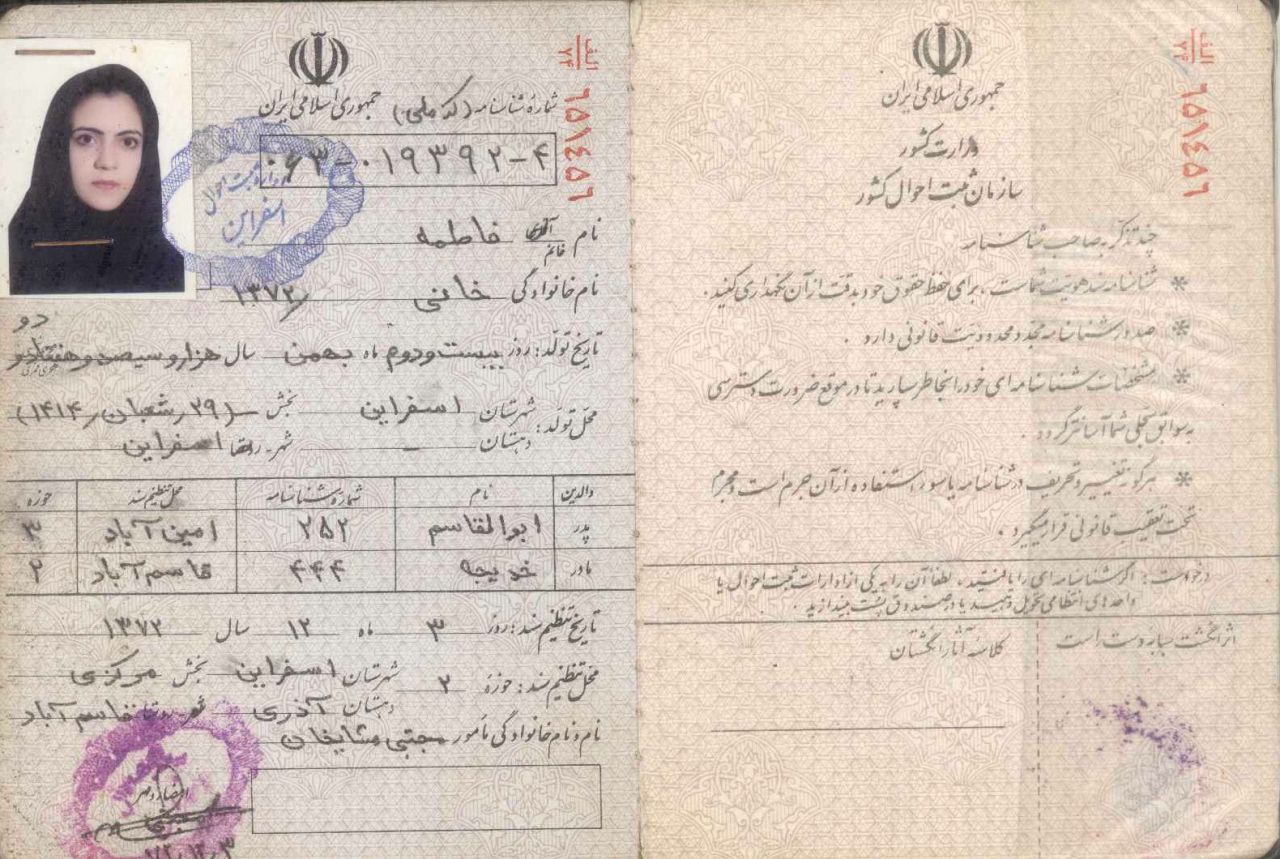 الف
۷۴
۶۵۱۴۵۶
جمهوری اسلامی ایران
وزارت کشور
سازمان ثبت احوال کشور
چند تذکر به صاحب شناسنامه
* شناسنامه سند هویت شماست ، برای حفظ حقوق خود بدقت از آن نگهداری کنید .
* صدور شناسنامه مجدد محدودیت قانونی دارد .
* مشخصات شناسنامه ای خود را بخاطر بسپارید تا در موقع ضرورت دسترسی
به سوابق سجلی شما آسانتر گردد .
* هرگونه تغییر و تحریف در شناسنامه یا سوء استفاده از آن جرم است و مجرم
تحت تعقیب قانونی قرار میگیرد .
درخواست : اگر شناسنامه ای را یافتید ، لطفاً آن را به یکی از ادارات ثبت احوال یا
واحدهای انتظامی تحویل دهید یا در صندوق پست بیندازید .
اثر انگشت سبابه دست راست
کلاسه آثار انگشتان
الف
۷۴
۶۵۱۴۵۶
جمهوری اسلامی ایران
شمارهٔ شناسنامه (کد ملی)
۰۶۳-۰۱۹۳۹۲-۴
اسفراین
نام آقای خانم فاطمه
نام خانوادگی خانی ۱۳۷۲
تاریخ تولد : روز بیست و دوم ماه بهمن سال هزار و سیصد و هفتاد و
دو
محل تولد : شهرستان اسفراین بخش (۲۹ رشعبان ر ۱۴۱۴)
دهستان - شهر - روستا اسفراین
والدین نام شماره شناسنامه محل تنظیم سند حوزه
پدر ابوالقاسم ۲۵۲ امین آباد ۳
مادر خدیجه ۴۴۴ قاسم آباد ۲
تاریخ تنظیم سند : روز ۳ ماه ۱۲ سال ۱۳۷۲
محل تنظیم سند : حوزه ۲ شهرستان اسفراین بخش مرکزی
دهستان آذری قاسم آباد
نام و نام خانوادگی مأمور مجتبی مشایخان
امضاء و مهر